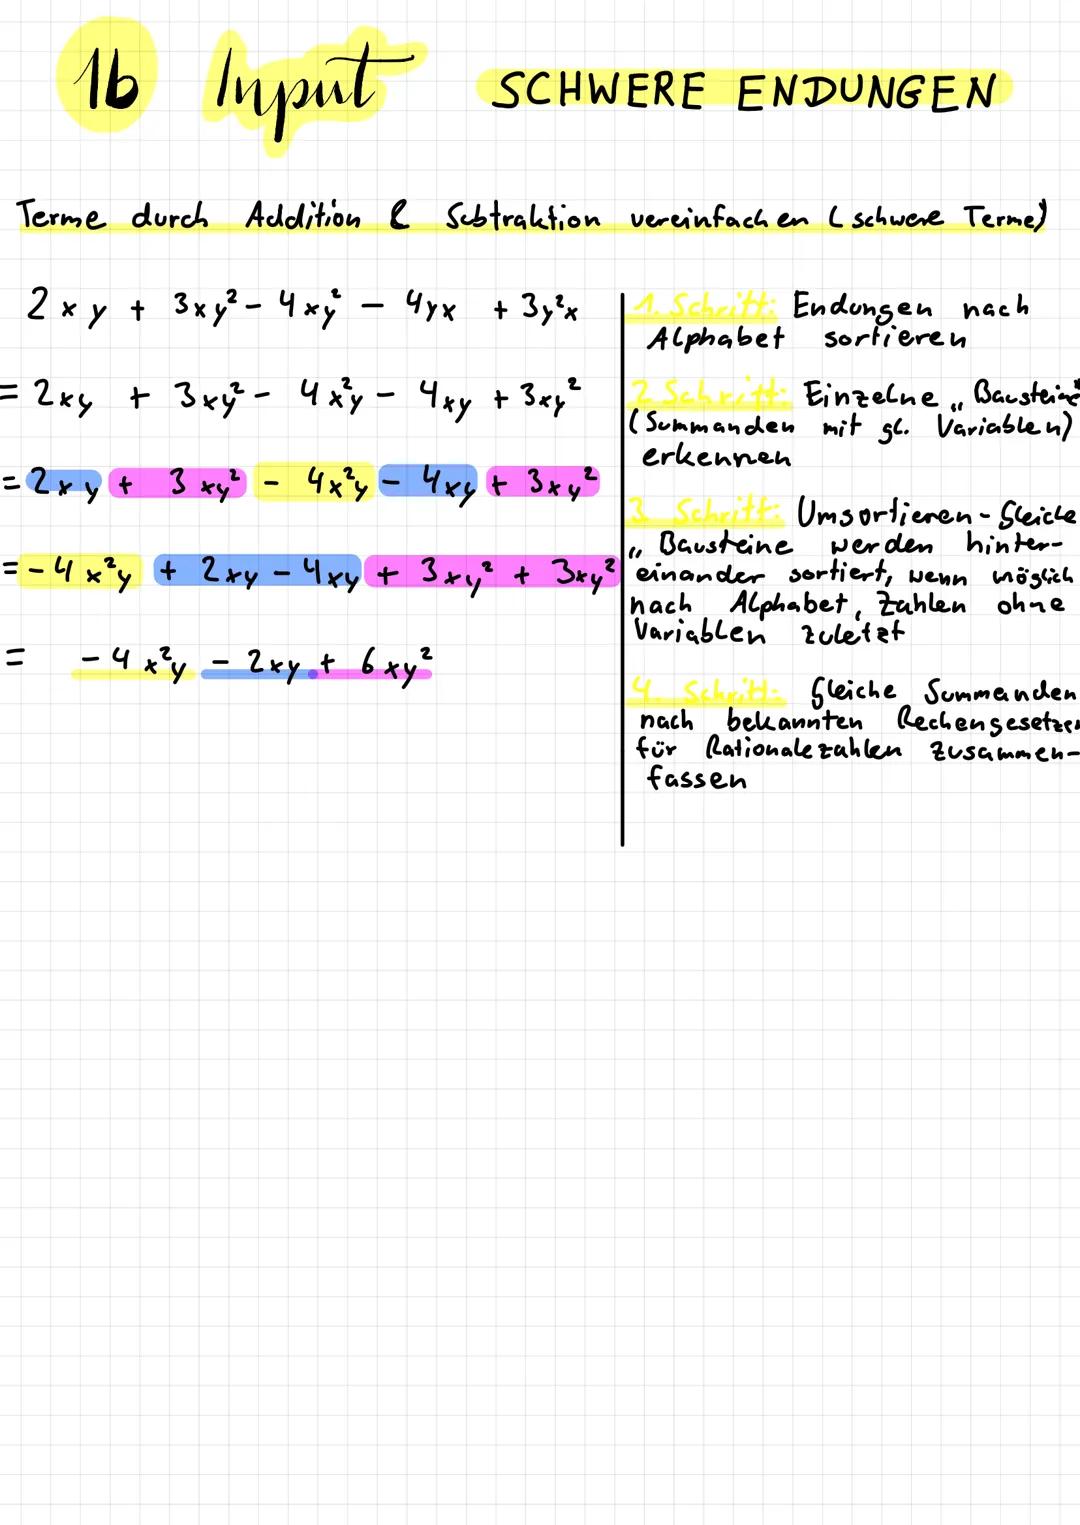 1b Input SCHWERE ENDUNGEN
Terme durch Addition & Subtraktion vereinfachen (schwere Terme)
2xy + 3xy² - 4xy² - 4yx + 3y²x
= 2xy + 3xy² - 4x²y - 4xy + 3xy²
= 2xy + 3xy² - 4x²y - 4xy + 3xy²
= -4x²y + 2xy - 4xy + 3xy² + 3xy²
= -4x²y - 2xy + 6xy²
1. Schritt: Endungen nach
Alphabet sortieren
2 Schritt: Einzelne „Bausteine"
(Summanden mit gl. Variablen)
erkennen
3. Schritt: Umsortieren - Gleiche
„Bausteine werden hinter-
einander sortiert, wenn möglich
nach Alphabet, Zahlen ohne
Variablen zuletzt
4. Schritt: Gleiche Summanden
nach bekannten Rechengesetzen
für Rationale zahlen zusammen-
fassen